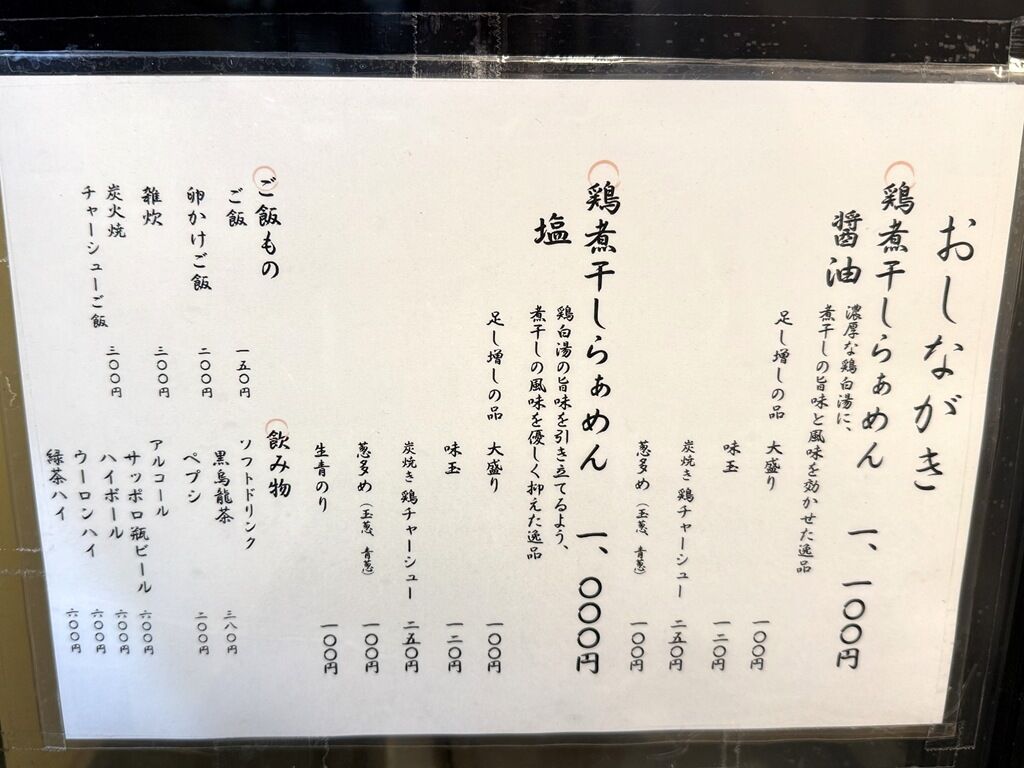 おしながき
鶏煮干しらぁめん 一、一〇〇円
醤油
濃厚な鶏白湯に、
煮干しの旨味と風味を効かせた逸品
足し増しの品 大盛り 一〇〇円
味玉 一二〇円
炭焼き鶏チャーシュー 二五〇円
葱多め（玉葱、青葱） 一〇〇円
鶏煮干しらぁめん 一、〇〇〇円
塩
鶏白湯の旨味を引き立てるよう、
煮干しの風味を優しく抑えた逸品
足し増しの品 大盛り 一〇〇円
味玉 一二〇円
炭焼き鶏チャーシュー 二五〇円
葱多め（玉葱、青葱） 一〇〇円
生青のり 一〇〇円
ご飯もの
ご飯 一五〇円
卵かけご飯 二〇〇円
雑炊 三〇〇円
炭火焼
チャーシューご飯 三〇〇円
飲み物
ソフトドリンク
黒烏龍茶 三八〇円
ペプシ 二〇〇円
アルコール
サッポロ瓶ビール 六〇〇円
ハイボール 六〇〇円
ウーロンハイ 六〇〇円
緑茶ハイ 六〇〇円